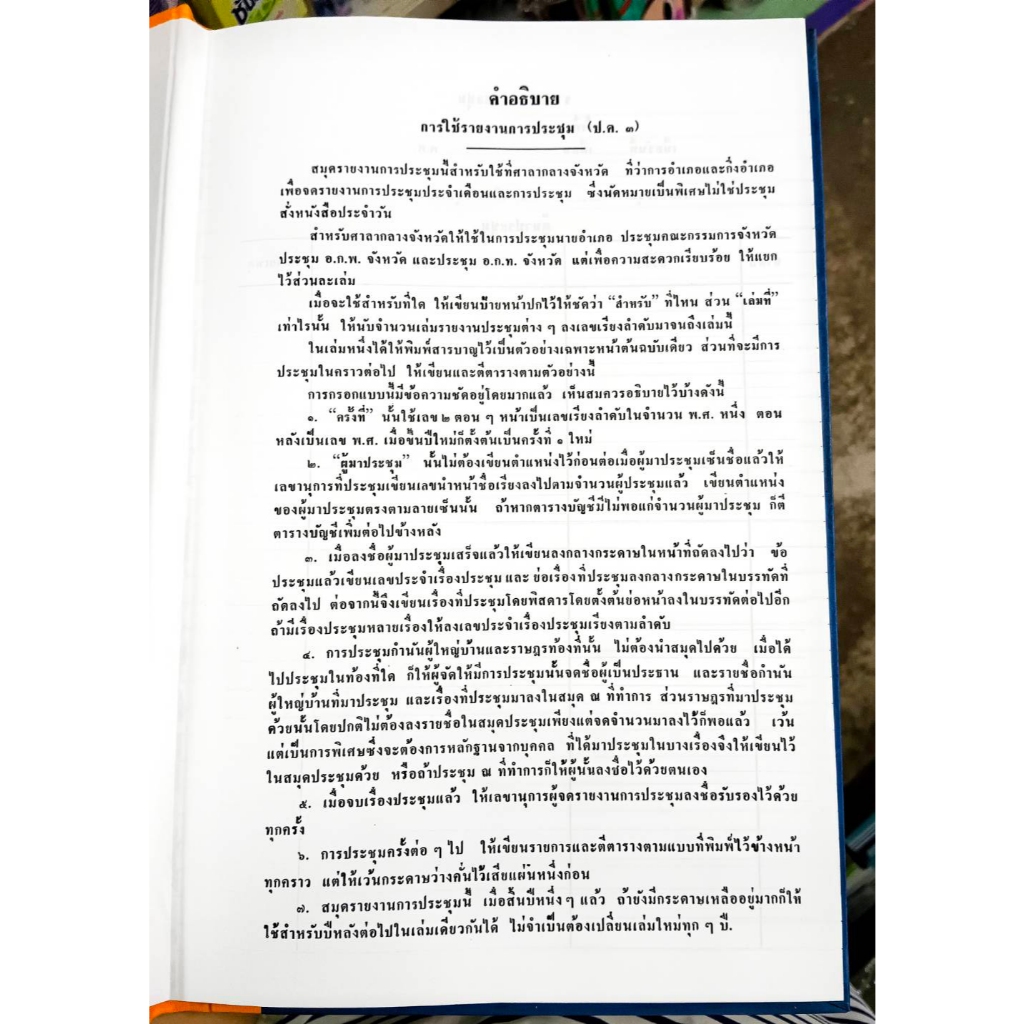 คำอธิบาย
การใช้รายงานการประชุม (ป.ค. ๓)
สมุดรายงานการประชุมนี้สำหรับใช้ที่ศาลากลางจังหวัด ที่ว่าการอำเภอและกิ่งอำเภอ
เพื่อจดรายงานการประชุมประจำเดือนและการประชุม ซึ่งนัดหมายเป็นพิเศษไม่ใช่ประชุม
สั่งหนังสือประจำวัน
สำหรับศาลากลางจังหวัดให้ใช้ในการประชุมนายอำเภอ ประชุมคณะกรรมการจังหวัด
ประชุม อ.ก.พ. จังหวัด และประชุม อ.ก.ท. จังหวัด แต่เพื่อความสะดวกเรียบร้อย ให้แยก
ไว้ส่วนละเล่ม
เมื่อจะใช้สำหรับที่ใด ให้เขียนป้ายหน้าปกไว้ให้ชัดว่า “สำหรับ” ที่ไหน ส่วน “เล่มที่”
เท่าไรนั้น ให้นับจำนวนเล่มรายงานประชุมต่าง ๆ ลงเลขเรียงลำดับมาจนถึงเล่มนี้
ในเล่มหนึ่งได้ให้พิมพ์สารบาญไว้เป็นตัวอย่างเฉพาะหน้าต้นฉบับเดียว ส่วนที่จะมีการ
ประชุมในคราวต่อไป ให้เขียนและตีตารางตามตัวอย่างนี้
การกรอกแบบนี้มีข้อความชัดอยู่โดยมากแล้ว เห็นสมควรอธิบายไว้บ้างดังนี้
๑. “ครั้งที่” นั้นใช้เลข ๒ ตอน ๆ หน้าเป็นเลขเรียงลำดับในจำนวน พ.ศ. หนึ่ง ตอน
หลังเป็นเลข พ.ศ. เมื่อขึ้นปีใหม่ก็ตั้งต้นเป็นครั้งที่ ๑ ใหม่
๒. “ผู้มาประชุม” นั้นไม่ต้องเขียนตำแหน่งไว้ก่อนต่อเมื่อผู้มาประชุมเซ็นชื่อแล้วให้
เลขานุการที่ประชุมเขียนเลขนำหน้าชื่อเรียงลงไปตามจำนวนผู้ประชุมแล้ว เขียนตำแหน่ง
ของผู้มาประชุมตรงตามลายเซ็นนั้น ถ้าหากตารางบัญชีมีไม่พอแก่จำนวนผู้มาประชุม ก็ตี
ตารางบัญชีเพิ่มต่อไปข้างหลัง
๓. เมื่อลงชื่อผู้มาประชุมเสร็จแล้วให้เขียนลงกลางกระดาษในหน้าที่ถัดลงไปว่า ข้อ
ประชุมแล้วเขียนเลขประจำเรื่องประชุม และ ย่อเรื่องที่ประชุมลงกลางกระดาษในบรรทัดที่
ถัดลงไป ต่อจากนี้จึงเขียนเรื่องที่ประชุมโดยพิสดารโดยตั้งต้นย่อหน้าลงในบรรทัดต่อไปอีก
ถ้ามีเรื่องประชุมหลายเรื่องให้ลงเลขประจำเรื่องประชุมเรียงตามลำดับ
๔. การประชุมกำนันผู้ใหญ่บ้านและราษฎรท้องที่นั้น ไม่ต้องนำสมุดไปด้วย เมื่อได้
ไปประชุมในท้องที่ใด ก็ให้ผู้จัดให้มีการประชุมนั้นจดชื่อผู้เป็นประธาน และรายชื่อกำนัน
ผู้ใหญ่บ้านที่มาประชุม และเรื่องที่ประชุมมาลงในสมุด ณ ที่ทำการ ส่วนราษฎรที่มาประชุม
ด้วยนั้นโดยปกติไม่ต้องลงรายชื่อในสมุดประชุมเพียงแต่จดจำนวนมาลงไว้ก็พอแล้ว เว้น
แต่เป็นการพิเศษซึ่งจะต้องการหลักฐานจากบุคคล ที่ได้มาประชุมในบางเรื่องจึงให้เขียนไว้
ในสมุดประชุมด้วย หรือถ้าประชุม ณ ที่ทำการก็ให้ผู้นั้นลงชื่อไว้ด้วยตนเอง
๕. เมื่อจบเรื่องประชุมแล้ว ให้เลขานุการผู้จดรายงานการประชุมลงชื่อรับรองไว้ด้วย
ทุกครั้ง
๖. การประชุมครั้งต่อ ๆ ไป ให้เขียนรายการและตีตารางตามแบบที่พิมพ์ไว้ข้างหน้า
ทุกคราว แต่ให้เว้นกระดาษว่างคั่นไว้เสียแผ่นหนึ่งก่อน
๗. สมุดรายงานการประชุมนี้ เมื่อสิ้นปีหนึ่ง ๆ แล้ว ถ้ายังมีกระดาษเหลืออยู่มากก็ให้
ใช้สำหรับปีหลังต่อไปในเล่มเดียวกันได้ ไม่จำเป็นต้องเปลี่ยนเล่มใหม่ทุก ๆ ปี.